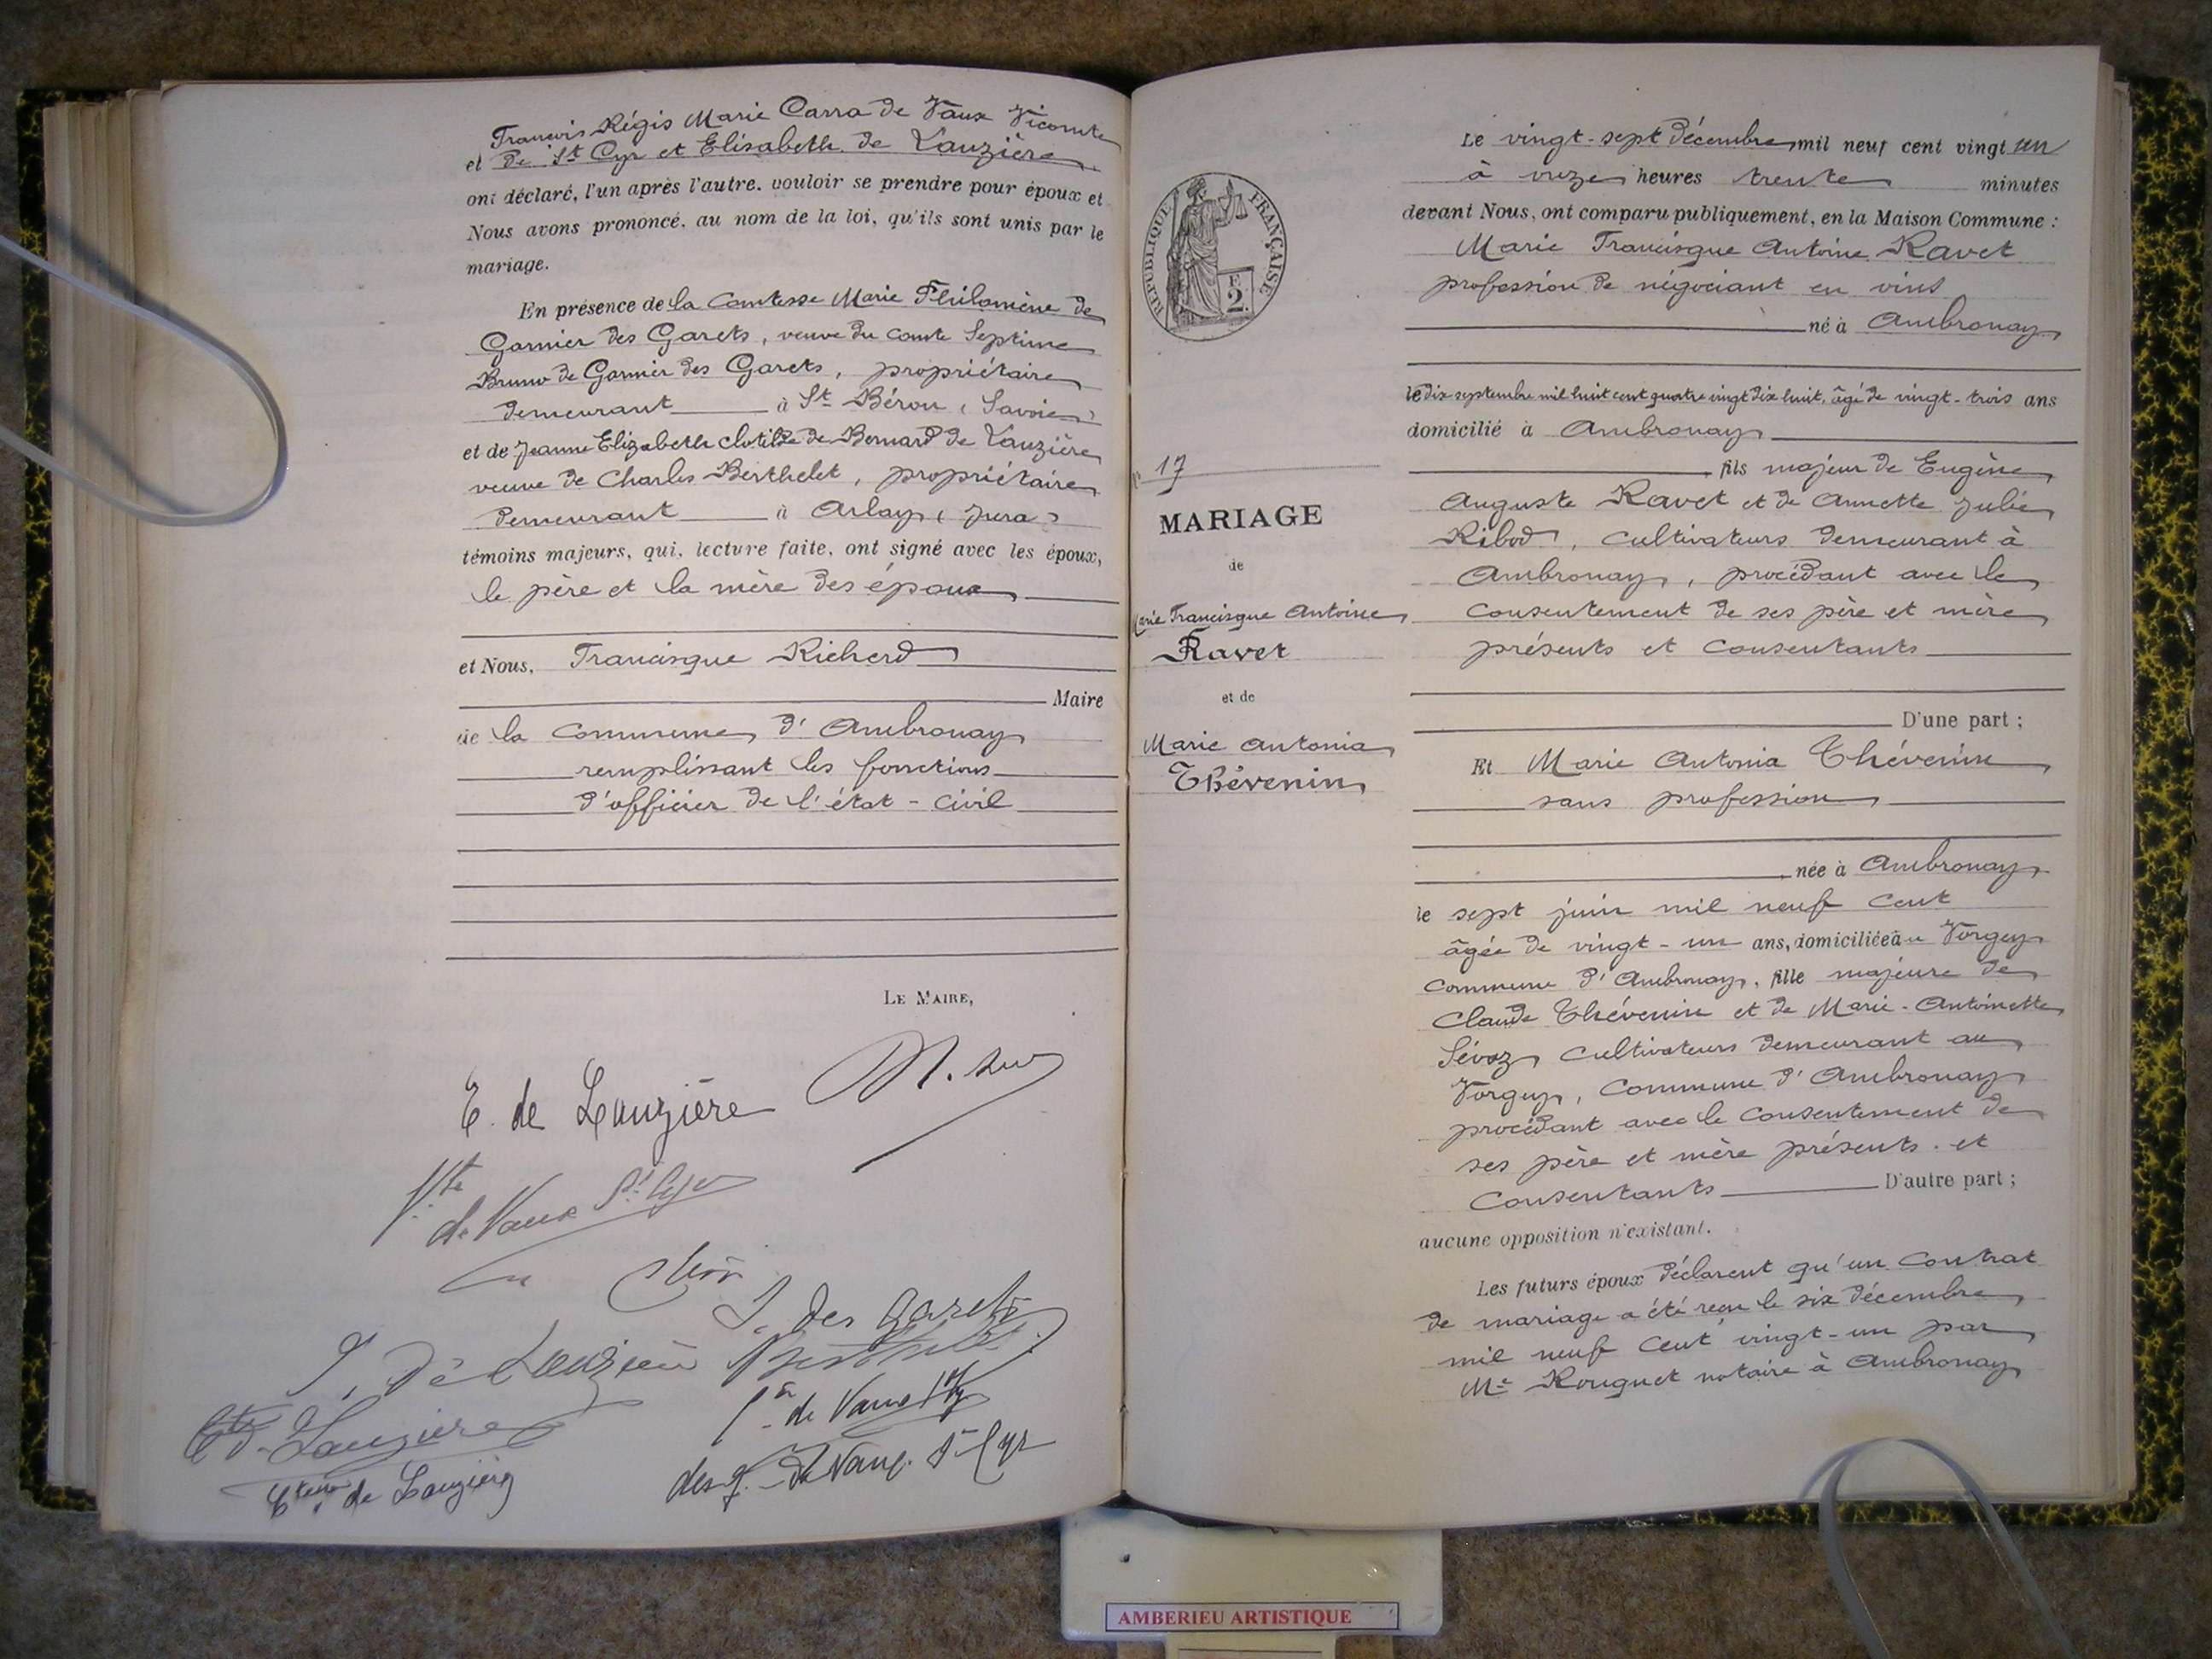 François Régis Marie Carra de Vaux Vicomte
et de St Cyr et Elisabeth de Lauzière
ont déclaré, l'un après l'autre, vouloir se prendre pour époux et
Nous avons prononcé, au nom de la loi, qu'ils sont unis par le
mariage.
En présence de la Comtesse Marie Philomène de
Garnier des Garets, veuve du comte Septime
Bruno de Garnier des Garets, propriétaire
demeurant à St Béron (Savoie)
et de Jeanne Elizabeth Clotilde de Bernard de Lauzière
veuve de Charles Berthelet, propriétaire
demeurant à Arlay (Jura)
témoins majeurs, qui, lecture faite, ont signé avec les époux,
le père et la mère des époux
et Nous, Francisque Richerd
Maire
de la Commune d'Ambronay
remplissant les fonctions
d'officier de l'état-civil
LE MAIRE,
E. de Lauzière
Vte de Vaux St Cyr
J. des Garets
J. de Lauzière
de Lauzière
de Vaux St Cyr
Ctesse de Lauzière
des g. de Vaux St Cyr
RÉPUBLIQUE FRANÇAISE
E
2.
n° 17
MARIAGE
de
Marie Francisque Antoine
Ravet
et de
Marie Antonia
Thévenin
Le vingt-sept décembre mil neuf cent vingt un
à onze heures trente minutes
devant Nous, ont comparu publiquement, en la Maison Commune :
Marie Francisque Antoine Ravet
profession de négociant en vins
né à Ambronay
le dix septembre mil huit cent quatre vingt dix huit, âgé de vingt-trois ans
domicilié à Ambronay
fils majeur de Eugène
Auguste Ravet et de Annette Julie
Ribod, cultivateurs demeurant à
Ambronay, procédant avec le
consentement de ses père et mère
présents et consentants
D'une part ;
Et Marie Antonia Thévenin
sans profession
née à Ambronay
le sept juin mil neuf cent
âgée de vingt-un ans, domiciliée au Vorgey
commune d'Ambronay, fille majeure de
Claude Thévenin et de Marie-Antoinette
Sévoz cultivateurs demeurant au
Vorgey, Commune d'Ambronay
procédant avec le consentement de
ses père et mère présents et
consentants D'autre part ;
aucune opposition n'existant.
Les futurs époux déclarent qu'un contrat
de mariage a été reçu le six décembre
mil neuf cent vingt-un par
Me Rouguet notaire à Ambronay
AMBERIEU ARTISTIQUE